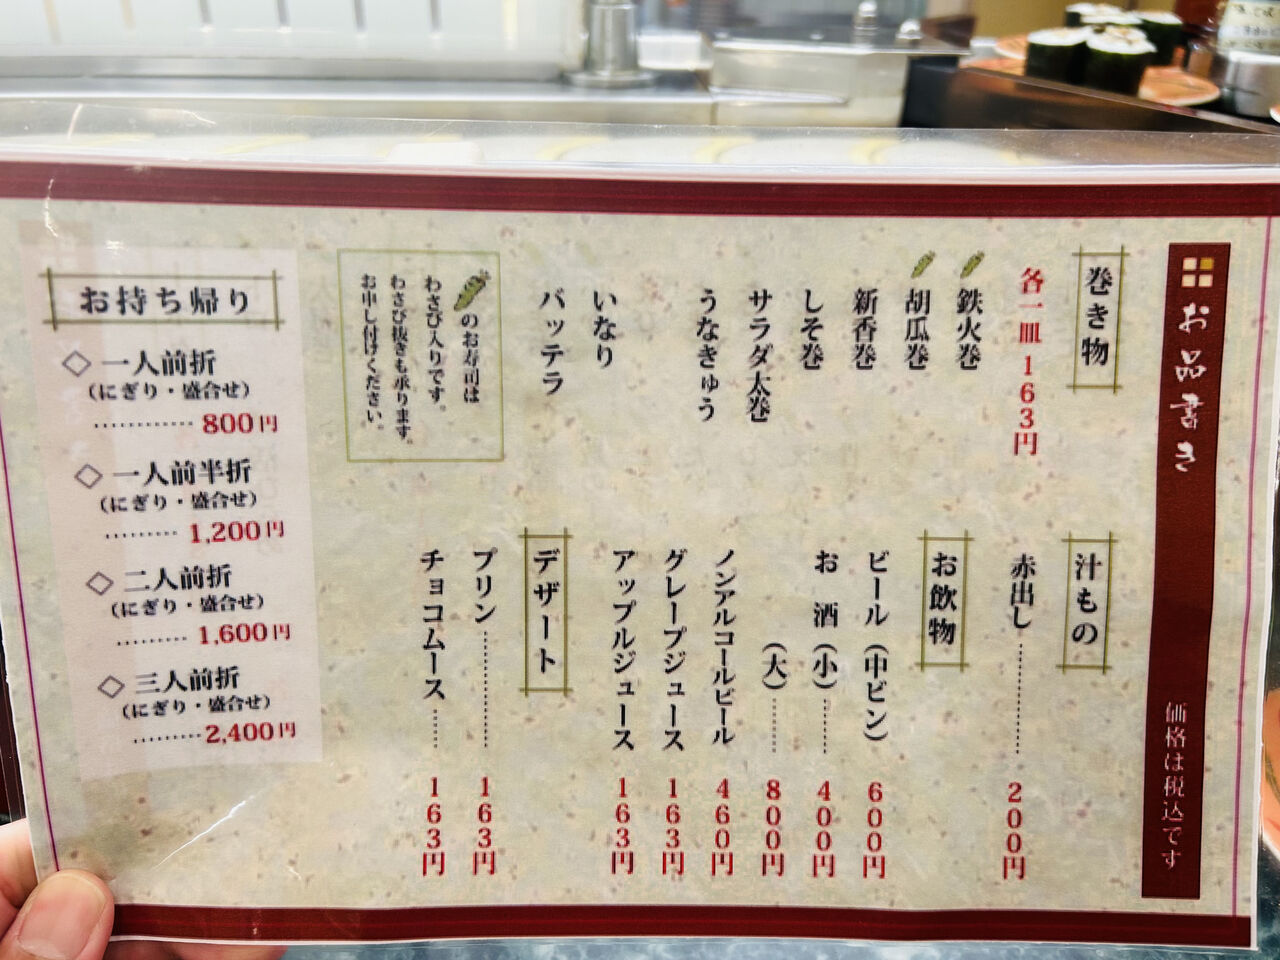 お品書き
価格は税込です
巻き物
各一皿 163円
鉄火巻
胡瓜巻
新香巻
しそ巻
サラダ太巻
うなきゅう
いなり
バッテラ
のお寿司は
わさび入りです。
わさび抜きも承ります。
お申し付けください。
汁もの
赤出し…………200円
お飲物
ビール（中ビン）600円
お酒（小）………400円
（大）………800円
ノンアルコールビール 460円
グレープジュース 163円
アップルジュース 163円
デザート
プリン…………163円
チョコムース……163円
お持ち帰り
◇一人前折
（にぎり・盛合せ）
…………800円
◇一人前半折
（にぎり・盛合せ）
………1,200円
◇二人前折
（にぎり・盛合せ）
………1,600円
◇三人前折
（にぎり・盛合せ）
………2,400円